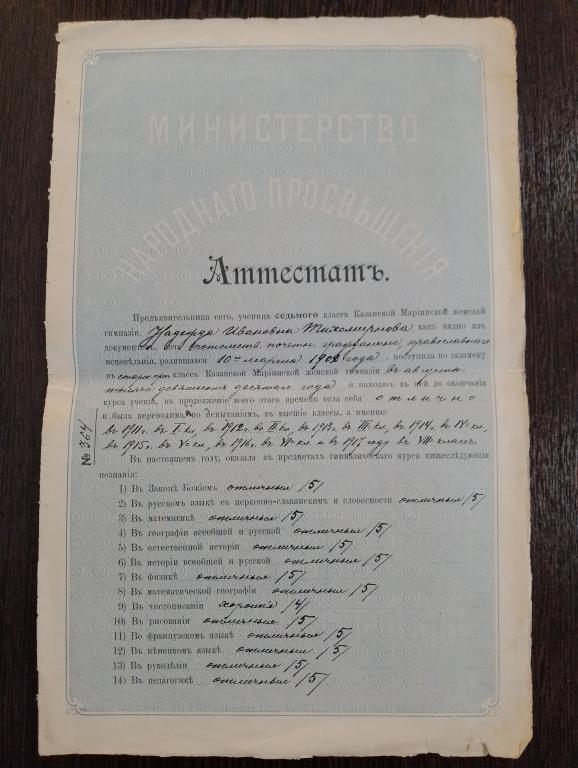 МИНИСТЕРСТВО
НАРОДНАГО ПРОСВѢЩЕНІЯ
Аттестатъ.
Предъявительница сего, ученица седьмого класса Казанской Маріинской женской
гимназіи, Надежда Ивановна Тихомирнова какъ видно изъ
документовъ, потомств. почетн. гражданина, православнаго
исповѣданія, родившаяся 10го марта 1902 года, поступила по экзамену
въ старш. приг. классъ Казанской Маріинской женской гимназіи въ августѣ
тысяча девятьсотъ десятаго года и находясь въ ней до окончанія
курса ученія, въ продолженіе всего этого времени вела себя отлично
и была переводима, по испытаніямъ, въ высшіе классы, а именно:
въ 1911 г. въ I кл., въ 1912 г. во II кл., въ 1913 г. въ III кл., въ 1914 г. въ IV кл.,
въ 1915 г. въ V кл., въ 1916 г. въ VI кл. и въ 1917 году въ VII классъ.
Въ настоящемъ году, оказала въ предметахъ гимназическаго курса нижеслѣдующія
познанія:
№ 364
1) Въ Законѣ Божіемъ отличныя /5/
2) Въ русскомъ языкѣ съ церковно-славянскимъ и словесности отличныя /5/
3) Въ математикѣ отличныя /5/
4) Въ географіи всеобщей и русской отличныя /5/
5) Въ естественной исторіи отличныя /5/
6) Въ исторіи всеобщей и русской отличныя /5/
7) Въ физикѣ отличныя /5/
8) Въ математической географіи отличныя /5/
9) Въ чистописаніи хорошія /4/
10) Въ рисованіи отличныя /5/
11) Во французскомъ языкѣ отличныя /5/
12) Въ нѣмецкомъ языкѣ отличныя /5/
13) Въ рукодѣліи отличныя /5/
14) Въ педагогикѣ отличныя /5/